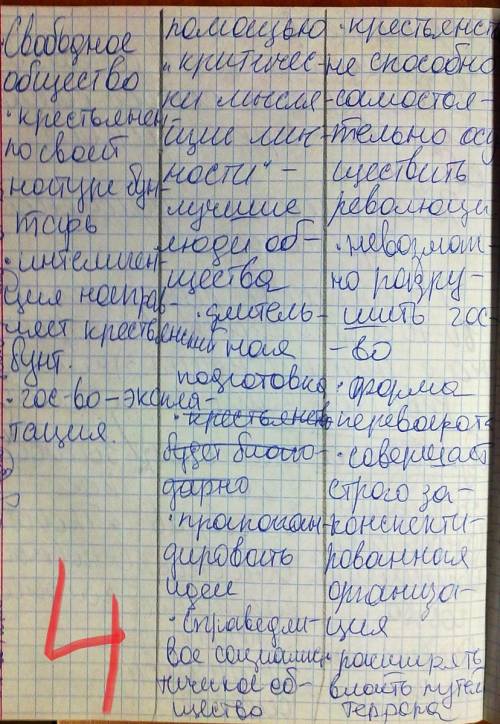 Свободное
общество
·крестьянен
по своей
натуре бун-
тарь
·интеллиген-
ция направ-
ляет крестьянский
бунт.
·гос-во-эксплуа-
тация.
4
помощью
"критичес-
ки мысля-
щие лич-
ности" –
лучшие
люди об-
щества
·длитель-
ная
подготовка
·крестьянство
будет благо-
дарно
·пропоган-
дировать
идеи
·справедли-
вое социалис-
тическое об-
щество
·крестьянст
не способно
самостоя-
тельно осу
ществить
революци
·невозмож-
но разру-
шить гос-
-во
·форма
переворота
·совершает
строго за-
конспекти-
рованная
организа-
ция
·расширять
власть путём
террора